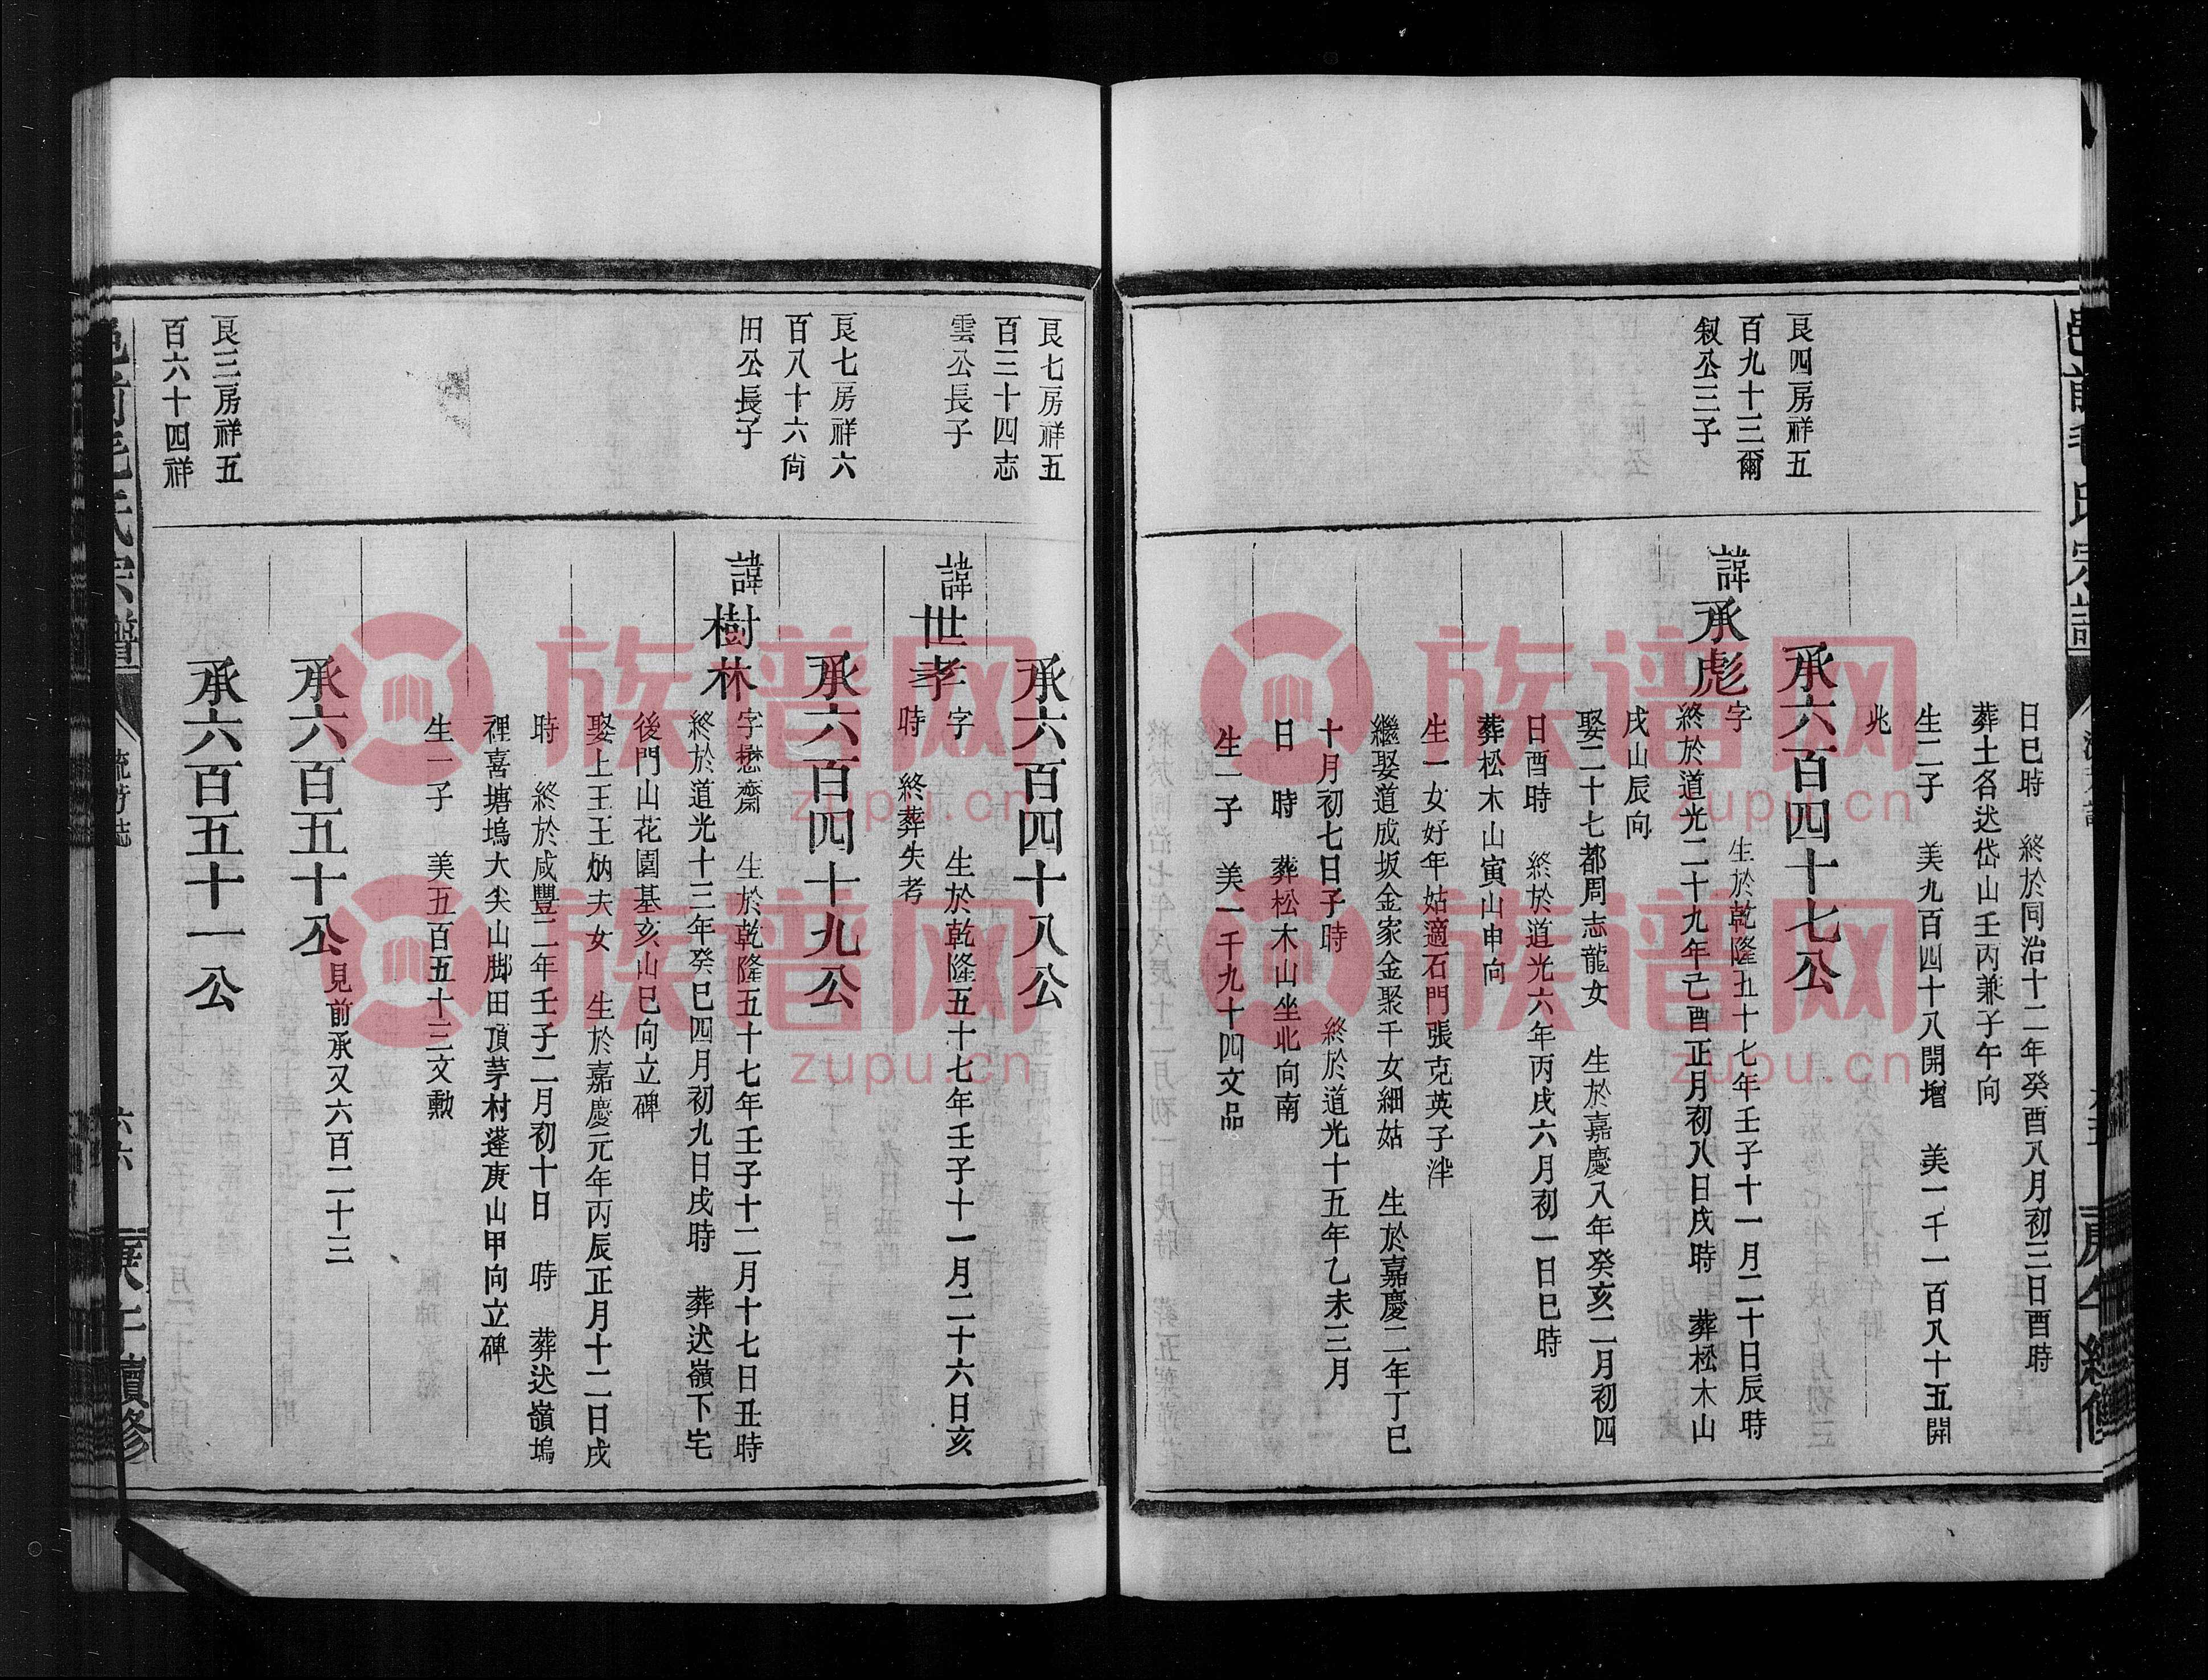 日巳時　終於同治十二年癸酉八月初三日酉時
葬土名送岱山壬丙兼子午向
生二子　美九百四十八開增　美一千一百八十五開
兆
良四房祥五
百九十三爾
釵公三子
承六百四十七公
諱承彪
字　生於乾隆五十七年壬子十一月二十日辰時
終於道光二十九年己酉正月初八日戌時　葬松木山
戌山辰向
娶二十七都周志龍女　生於嘉慶八年癸亥二月初四
日酉時　終於道光六年丙戌六月初一日巳時
葬松木山寅山申向
生一女好年姑適石門張克英子泮
繼娶道成坂金家金聚千女細姑　生於嘉慶二年丁巳
十月初七日子時　終於道光十五年乙未三月
日　時　葬松木山坐北向南
生一子　美一千九十四文品
良七房祥五
百三十四志
雲公長子
承六百四十八公
諱世孝
字　生於乾隆五十七年壬子十一月二十六日亥
時　終葬失考
良七房祥六
百八十六尙
田公長子
承六百四十九公
諱樹林
字懋齋　生於乾隆五十七年壬子十二月十七日丑時
終於道光十三年癸巳四月初九日戌時　葬送嶺下宅
後門山花園基亥山巳向立碑
娶上王王炳夫女　生於嘉慶元年丙辰正月十二日戌
時　終於咸豐二年壬子二月初十日　時　葬送嶺塢
裡喜塘塢大尖山脚田頂茅村蓬庚山甲向立碑
生一子　美五百五十三文勲
承六百五十公
見前承又六百二十三
良三房祥五
百六十四祥
承六百五十一公
毛氏宗譜
六六
續修
族谱网
zupu.cn
族谱网
zupu.cn
族谱网
zupu.cn
族谱网
zupu.cn